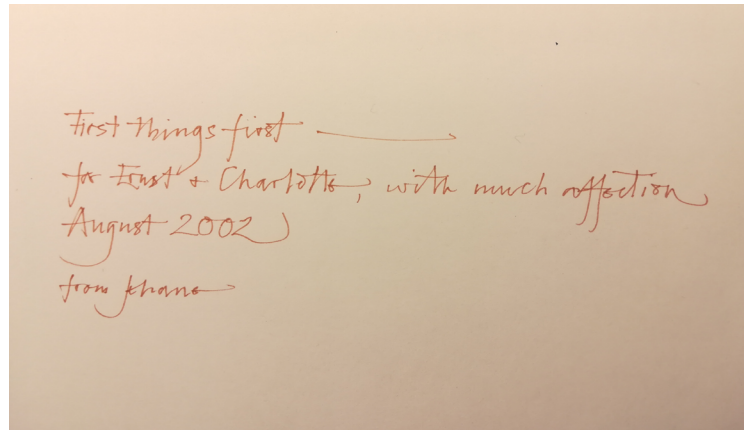 First things first
for Ernst & Charlotte, with much affection
August 2002
from